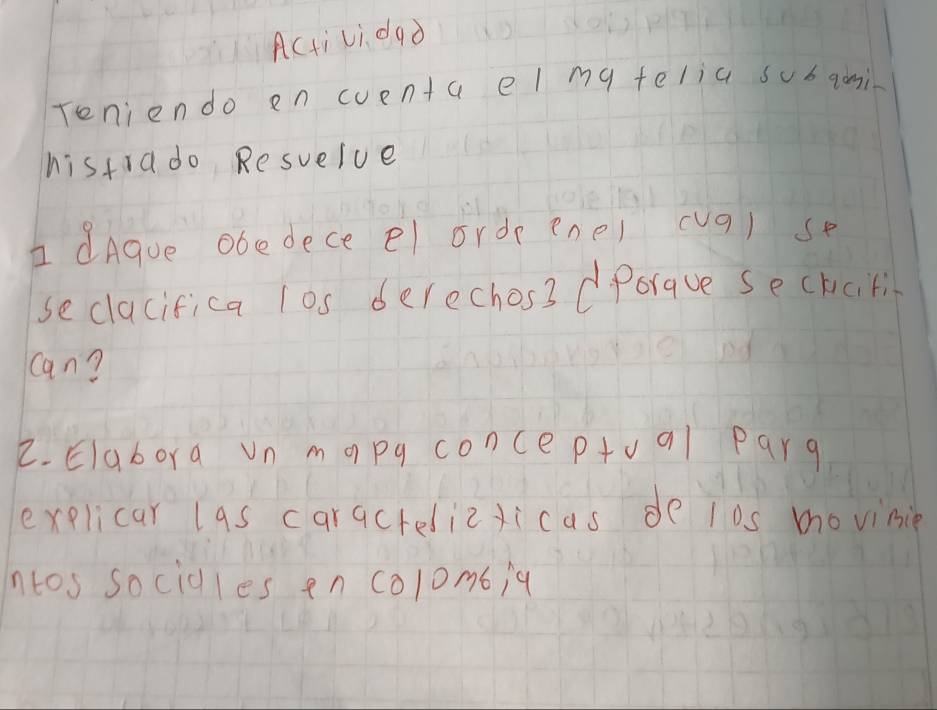 Actividad
Teniendo en cuenta el matelia subadmi-
histrado, Resuelve
1 ¿Aque obedece el orde enel cual se
se clacifica los derechos? ¿Porque se clacifi-
can?
2. Elabora un mapa conceptual para
explicar las caractelizticas de los movimie
ntos sociales en colombia